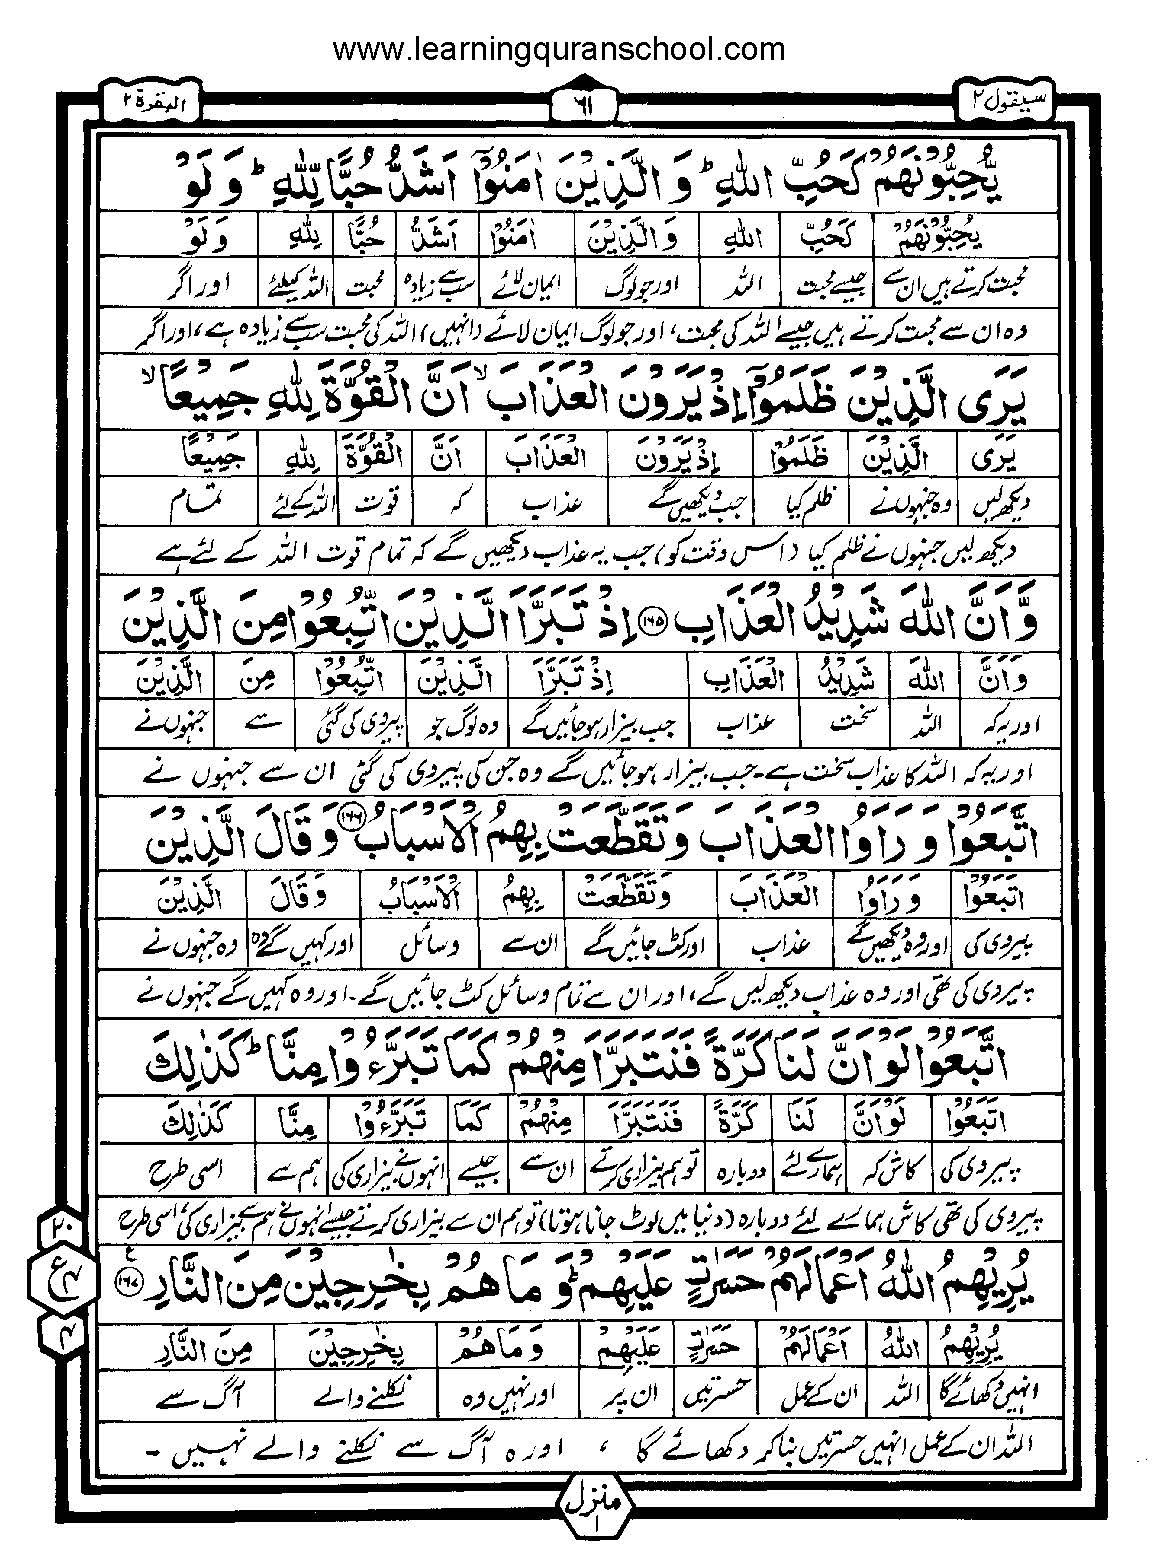 www.learningquranschool.com
سیقول ۲
۶۱
البقرة ۲
يُّحِبُّوْنَهُمْ كَحُبِّ اللّٰهِ ؕ وَ الَّذِيْنَ اٰمَنُوْٓا اَشَدُّ حُبًّا لِّلّٰهِ ؕ وَ لَوْ
يُحِبُّوْنَهُمْ كَحُبِّ اللّٰهِ وَ الَّذِيْنَ اٰمَنُوْٓا اَشَدُّ حُبًّا لِلّٰهِ وَ لَوْ
محبت کرتے ہیں ان سے جیسے محبت اللہ اور جو لوگ ایمان لائے سب سے زیادہ محبت اللہ کیلئے اور اگر
وہ ان سے محبت کرتے ہیں جیسے اللہ کی محبت، اور جو لوگ ایمان لائے (انہیں) اللہ کی محبت سب سے زیادہ ہے، اور اگر
يَرَى الَّذِيْنَ ظَلَمُوْٓا اِذْ يَرَوْنَ الْعَذَابَ ۙ اَنَّ الْقُوَّةَ لِلّٰهِ جَمِيْعًا ۙ
يَرَى الَّذِيْنَ ظَلَمُوْٓا اِذْ يَرَوْنَ الْعَذَابَ اَنَّ الْقُوَّةَ لِلّٰهِ جَمِيْعًا
دیکھ لیں وہ جنہوں نے ظلم کیا جب دیکھیں گے عذاب کہ قوت اللہ کے لئے تمام
دیکھ لیں جنہوں نے ظلم کیا (اس وقت کو) جب یہ عذاب دیکھیں گے کہ تمام قوت اللہ کے لئے ہے
وَّ اَنَّ اللّٰهَ شَدِيْدُ الْعَذَابِ ۱۶۵ اِذْ تَبَرَّاَ الَّذِيْنَ اتُّبِعُوْا مِنَ الَّذِيْنَ
وَ اَنَّ اللّٰهَ شَدِيْدُ الْعَذَابِ اِذْ تَبَرَّاَ الَّذِيْنَ اتُّبِعُوْا مِنَ الَّذِيْنَ
اور یہ کہ اللہ سخت عذاب جب بیزار ہو جائیں گے وہ لوگ جو پیروی کی گئی سے جنہوں نے
اور یہ کہ اللہ کا عذاب سخت ہے۔ جب بیزار ہو جائیں گے وہ جن کی پیروی کی گئی ان سے جنہوں نے
اتَّبَعُوْا وَ رَاَوُا الْعَذَابَ وَ تَقَطَّعَتْ بِهِمُ الْاَسْبَابُ ۱۶۶ وَ قَالَ الَّذِيْنَ
اتَّبَعُوْا وَ رَاَوُا الْعَذَابَ وَ تَقَطَّعَتْ بِهِمُ الْاَسْبَابُ وَ قَالَ الَّذِيْنَ
پیروی کی اور وہ دیکھیں گے عذاب اور کٹ جائیں گے ان سے وسائل اور کہیں گے وہ وہ جنہوں نے
پیروی کی تھی اور وہ عذاب دیکھ لیں گے، اور ان سے تمام وسائل کٹ جائیں گے۔ اور وہ کہیں گے جنہوں نے
اتَّبَعُوْا لَوْ اَنَّ لَنَا كَرَّةً فَنَتَبَرَّاَ مِنْهُمْ كَمَا تَبَرَّءُوْا مِنَّا ؕ كَذٰلِكَ
اتَّبَعُوْا لَوْ اَنَّ لَنَا كَرَّةً فَنَتَبَرَّاَ مِنْهُمْ كَمَا تَبَرَّءُوْا مِنَّا كَذٰلِكَ
پیروی کی کاش کہ ہمارے لئے دوبارہ تو ہم بیزاری کرتے ان سے جیسے انہوں نے بیزاری کی ہم سے اسی طرح
پیروی کی تھی کاش ہمارے لئے دوبارہ (دنیا میں لوٹ جانا ہوتا) تو ہم ان سے بیزاری کرتے جیسے انہوں نے ہم سے بیزاری کی، اسی طرح
يُرِيْهِمُ اللّٰهُ اَعْمَالَهُمْ حَسَرٰتٍ عَلَيْهِمْ ؕ وَ مَا هُمْ بِخٰرِجِيْنَ مِنَ النَّارِ ۱۶۷ ع
يُرِيْهِمُ اللّٰهُ اَعْمَالَهُمْ حَسَرٰتٍ عَلَيْهِمْ وَ مَا هُمْ بِخٰرِجِيْنَ مِنَ النَّارِ
انہیں دکھائے گا اللہ ان کے عمل حسرتیں ان پر اور نہیں وہ نکلنے والے آگ سے
اللہ ان کے عمل انہیں حسرتیں بنا کر دکھائے گا ، اور وہ آگ سے نکلنے والے نہیں ۔
۲۰
ع ۴
۴
منزل ۱